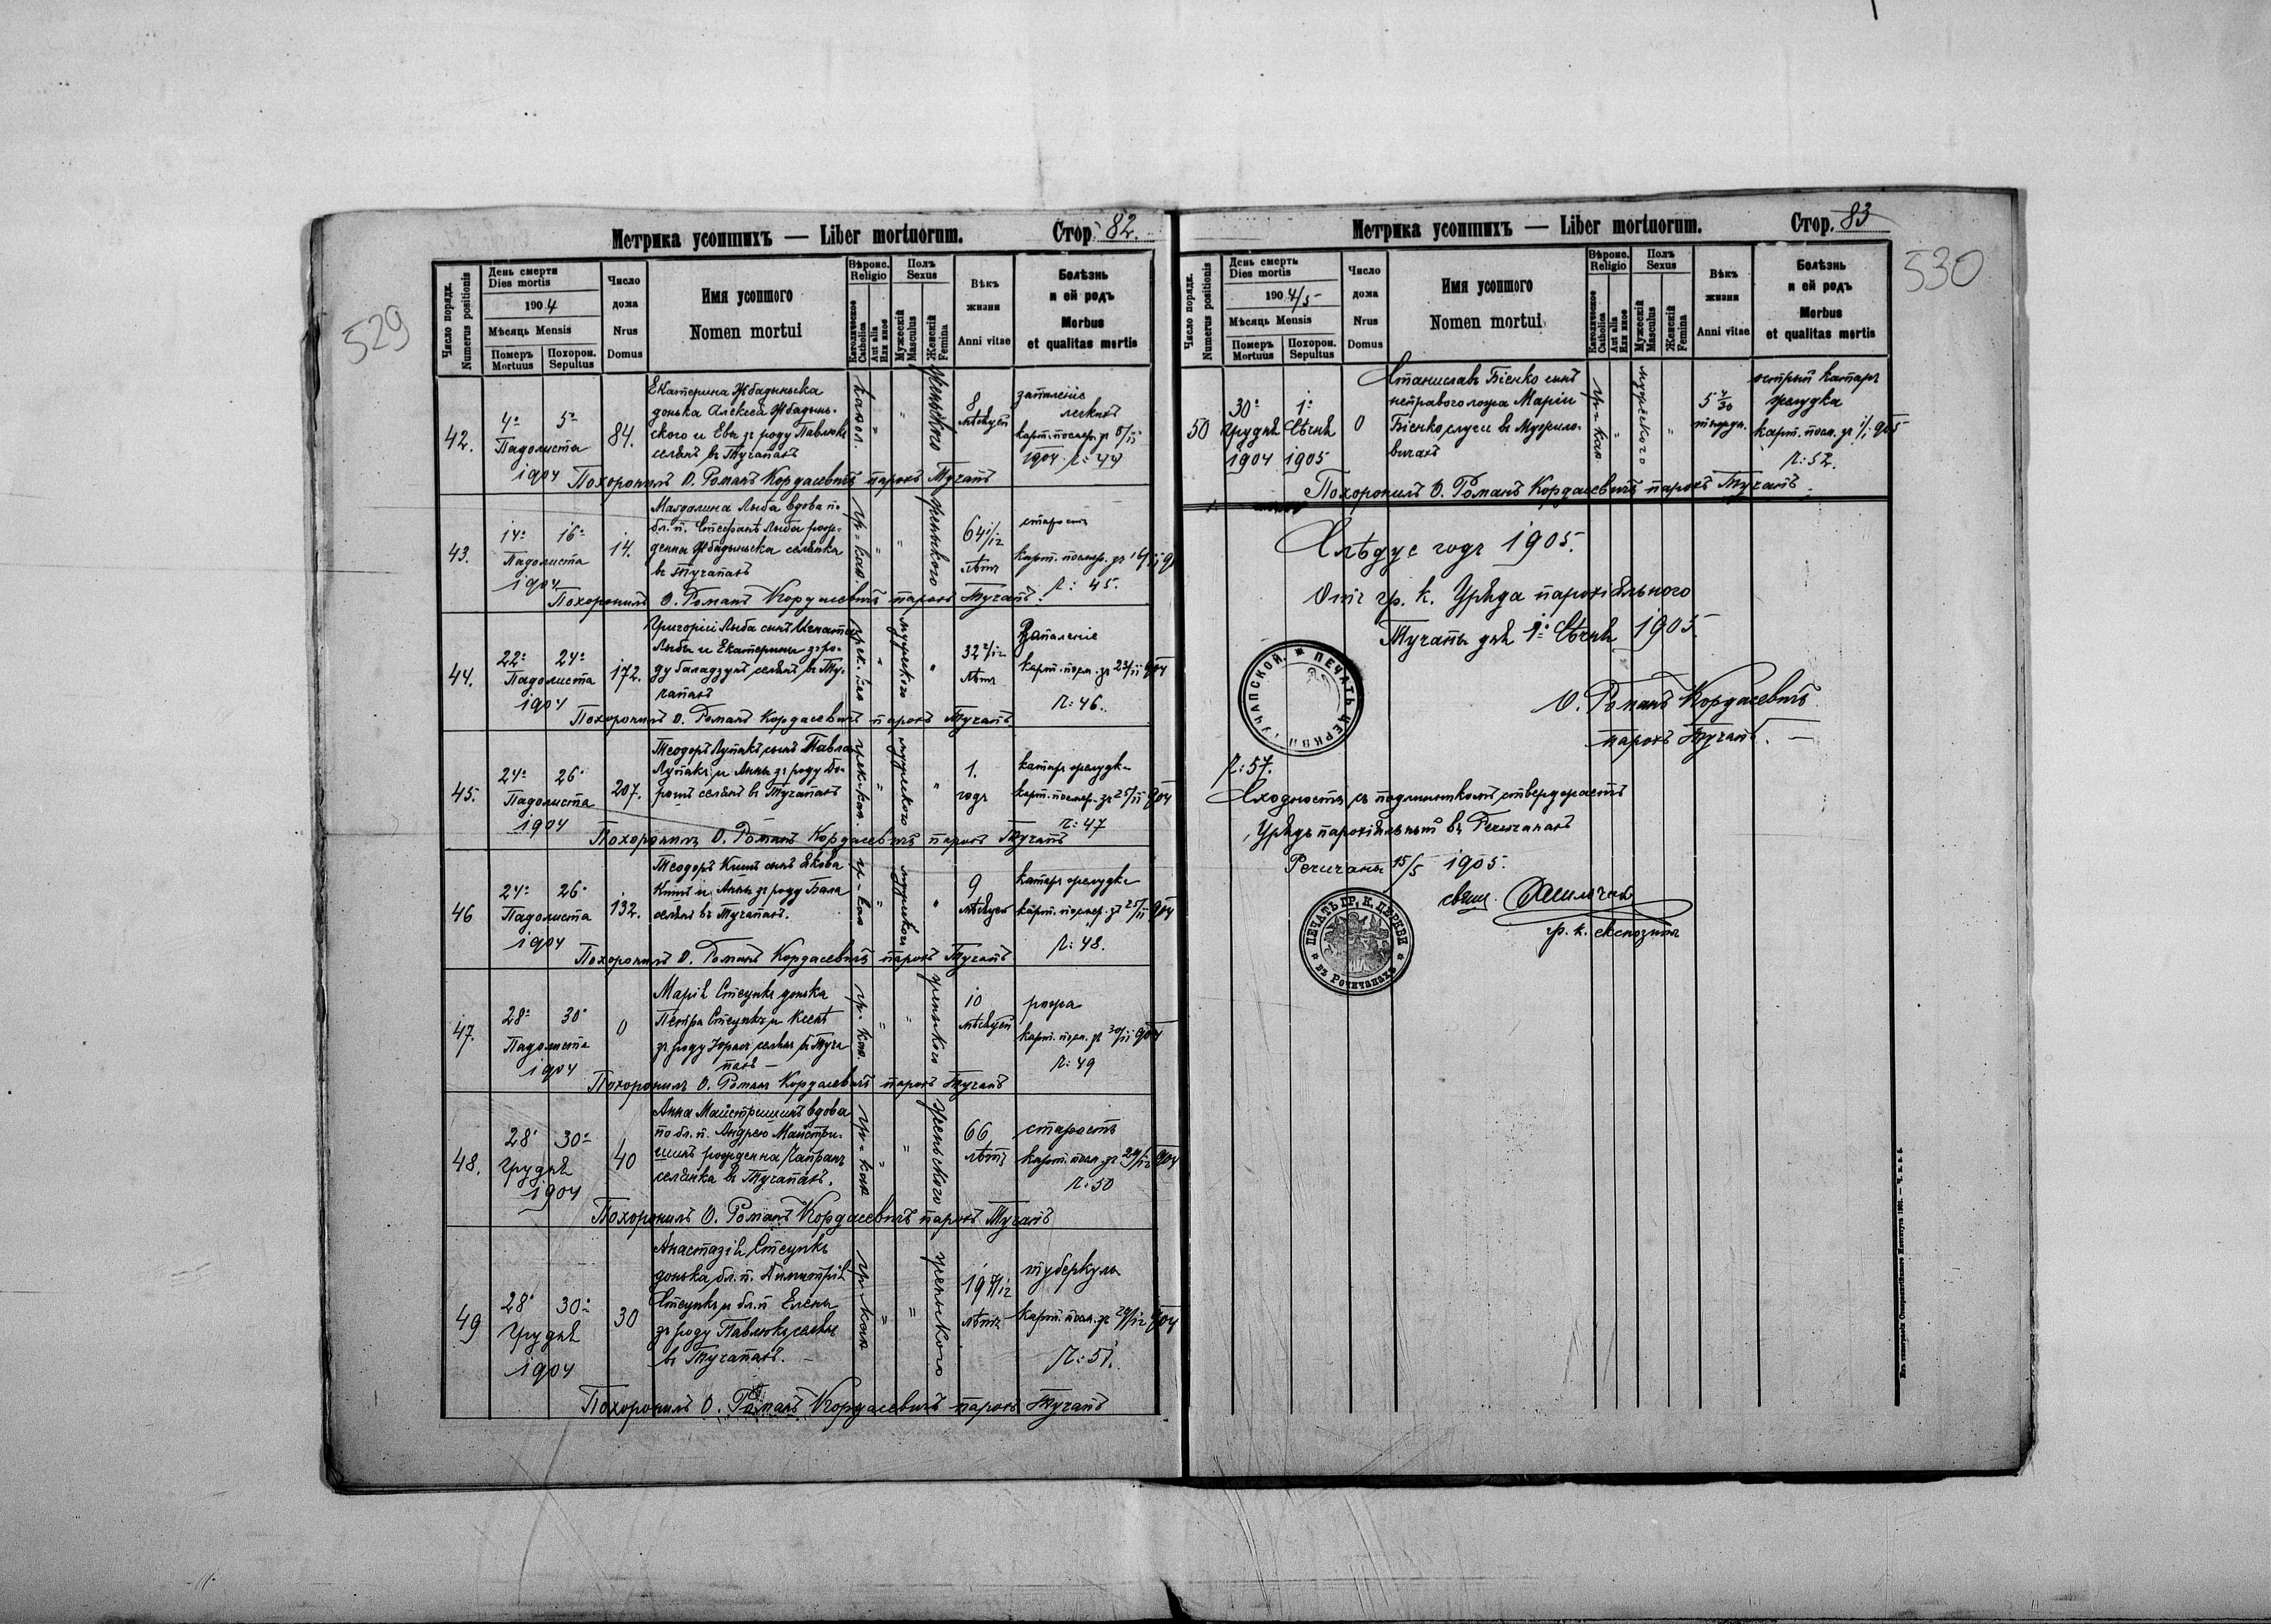 529
Метрика усопшихъ — Liber mortuorum.
Стор. 82.
Число порядк.
Numerus positionis
День смерти
Dies mortis
1904
Мѣсяць Mensis
Померъ
Mortuus
Похорон.
Sepultus
Число
дома
Nrus
Domus
Имя усопшого
Nomen mortui
Вѣроис.
Religio
Католическое
Catholica
Aut alia
Или иное
Полъ
Sexus
Мужескій
Masculus
Женскій
Femina
Вѣкъ
жизни
Anni vitae
Болѣзнь
и ей родъ
Morbus
et qualitas mortis
42.
4
5
Падолиста
1904
84.
Екатерина
донька Алексея
ского и Евы зъ роду Павлюкъ
селянъ въ Тучапахъ
катол.
женского
8
мѣсяцей
запаленіе
легкихъ
карт. посмер. зъ 5/11
1904 Л: 44
Похоронилъ О. Романъ Кордасевичъ парохъ Тучапъ
43.
14
16
Падолиста
1904
14.
Магдалина Лыба вдова по
бл. п. Стефанѣ Лыба рож-
денна селянка
въ Тучапахъ
гр.-кат.
женьского
64 1/12
лѣтъ
старость
карт. посмер. зъ 16/11 9
Л: 45.
Похоронилъ О. Романъ Кордасевичъ парохъ Тучапъ.
44.
22
24
Падолиста
1904
172.
Григорій Лыба сынъ Игнатія
Лыбы и Екатерины зъ ро-
ду селянъ въ Ту-
чапахъ
грек.-кат
мужеского
32 2/12
лѣтъ
Запаленіе
карт. посм. зъ 23/11 904
Л: 46.
Похоронилъ О. Романъ Кордасевичъ парохъ Тучапъ
45.
24
26
Падолиста
1904
207.
Теодоръ Лупакъ сынъ Павла
Лупакъ и Анны зъ роду До-
рошъ селянъ въ Тучапахъ
грек.-кат.
мужеского
1.
годъ
катаръ желудка
карт. посмер. зъ 25/11 904
Л: 47
Похоронилъ О. Романъ Кордасевичъ парохъ Тучапъ
46
24
26
Падолиста
1904
132.
Теодоръ Кишъ сынъ Якова
Кишъ и Анны зъ роду Бала
селянъ въ Тучапахъ.
гр.-кат
мужеского
9
мѣсяцей
катаръ желудка
карт. посмер. зъ 25/11 904
Л: 48.
Похоронилъ О. Романъ Кордасевичъ парохъ Тучапъ
47.
28
30
Падолиста
1904
0
Марія Стецукъ донька
Петра Стецукъ и Ксенѣ
зъ роду селянъ въ Туча
пахъ —
гр. кат.
женьского
10
мѣсяцей
рожа
карт. посм. зъ 30/11 904
Л: 49
Похоронилъ О. Романъ Кордасевичъ парохъ Тучапъ
48.
28
30
Грудня
1904
40
Анна Майстришинъ вдова
по бл. п. Андрею Майстри-
шинъ рожденна Чапранъ
селянка въ Тучапахъ.
гр.-кат
женьского
66
лѣтъ
старость
карт. посм. зъ 29/12 904
Л: 50
Похоронилъ О. Романъ Кордасевичъ парохъ Тучапъ
49
28
30
Грудня
1904
30
Анастазія Стецукъ
донька бл. п. Димитрія
Стецукъ и бл. п Елены
зъ роду Павлюкъ селянъ
въ Тучапахъ. —
гр.-кат
женьского
19
лѣтъ
туберкулы
карт. посм. зъ 29/12 904
Л: 51.
Похоронилъ О. Романъ Кордасевичъ парохъ Тучапъ
530
Метрика усопшихъ — Liber mortuorum.
Стор. 83
Число порядк.
Numerus positionis
День смерть
Dies mortis
1904/5
Мѣсяць Mensis
Померъ
Mortuus
Похорон.
Sepultus
Число
дома
Nrus
Domus
Имя усопшого
Nomen mortui
Вѣроис.
Religio
Католическое
Catholica
Aut alia
Или иное
Полъ
Sexus
Мужескій
Masculus
Женскій
Femina
Вѣкъ
жизни
Anni vitae
Болѣзнь
и ей родъ
Morbus
et qualitas mortis
50
30
1
Грудня Сѣчня
1904 1905
0
Станиславъ Бієнко сынъ
неправого ложа Маріи
Бієнко слуги въ Мужило-
вичахъ
гр.-кат.
мужеского
5
тыждн.
острый катаръ
желудка
карт. посм. зъ 1/1 905
Л: 52.
Похоронилъ О. Романъ Кордасевичъ парохъ Тучапъ.
Слѣдує годъ 1905.
Отъ гр. к. Уряда парохіяльного
Тучапы дня 1 Сѣчня 1905.
О. Романъ Кордасевичъ
парохъ Тучапъ. —
ПЕЧАТЬ ЦЕРКВИ ТУЧАПСКОЙ
Л: 57.
Сходность съ подлинникомъ стверджаєтъ
Урядъ парохіяльный въ Речичанахъ
Речичаны 15/5 1905.
свящ.
гр. к. експозитъ
ПЕЧАТЬ ГР. К. ЦЕРКВИ въ Рочичанахъ
Изъ типографіи Ставропигійского Института 1901.